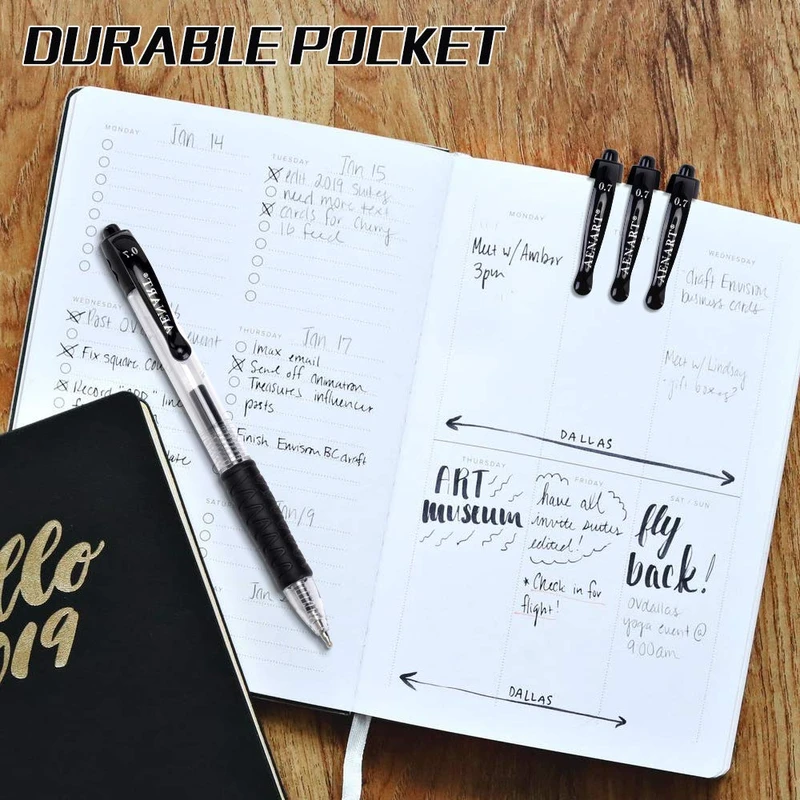 DURABLE POCKET
MONDAY
Jan 14
TUESDAY
Jan 15
edit 2019 suites
need more text
cards for cherry
lb feed
WEDNESDAY
16
Post OV
ment
Fix square
Record "APP" line
THURSDAY
Jan 17
Imax email
Send off animation
Treasures influencer
posts
Finish Envision BC draft
Jan 19
Jan
0.7
AENART®
MONDAY
Meet w/ Amber
3pm
0.7
AENART®
0.7
AENART®
0.7
AENART®
WEDNESDAY
draft Envision
business cards
Meet w/ Lindsay
-gift boxes?
DALLAS
THURSDAY
ART
museum
FRIDAY
have all
invite suites
edited!
* Check in for
flight!
SAT / SUN
fly
back!
ovdallas
yoga event @
9:00am
DALLAS
llo
019